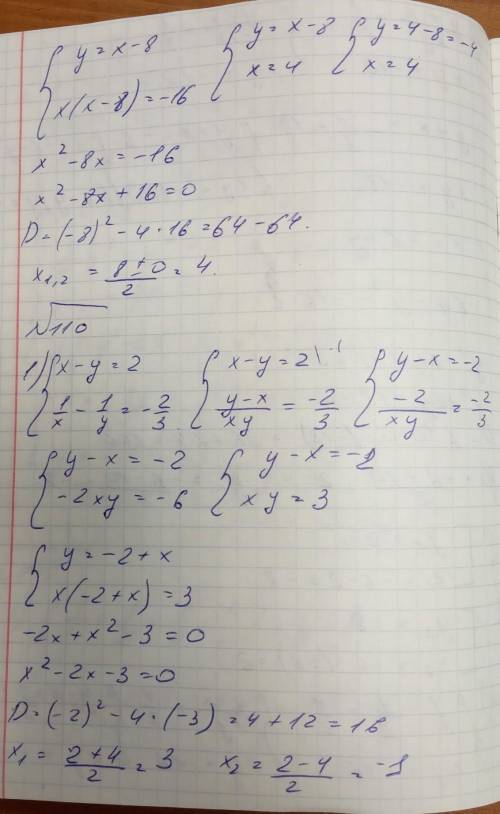 { y = x - 8   { y = x - 8   { y = 4 - 8 = -4
{ x(x - 8) = -16   { x = 4   { x = 4
x² - 8x = -16
x² - 8x + 16 = 0
D = (-8)² - 4 · 16 = 64 - 64.
x₁,₂ = (8 ± 0)/2 = 4.
№110
1) { x - y = 2   { x - y = 2 | -1   { y - x = -2
{ 1/x - 1/y = -2/3.   { (y - x)/xy = -2/3   { -2/xy = -2/3
{ y - x = -2   { y - x = -2
{ -2xy = -6   { xy = 3
{ y = -2 + x
{ x(-2 + x) = 3
-2x + x² - 3 = 0
x² - 2x - 3 = 0
D = (-2)² - 4 · (-3) = 4 + 12 = 16
x₁ = (2 + 4)/2 = 3   x₂ = (2 - 4)/2 = -1